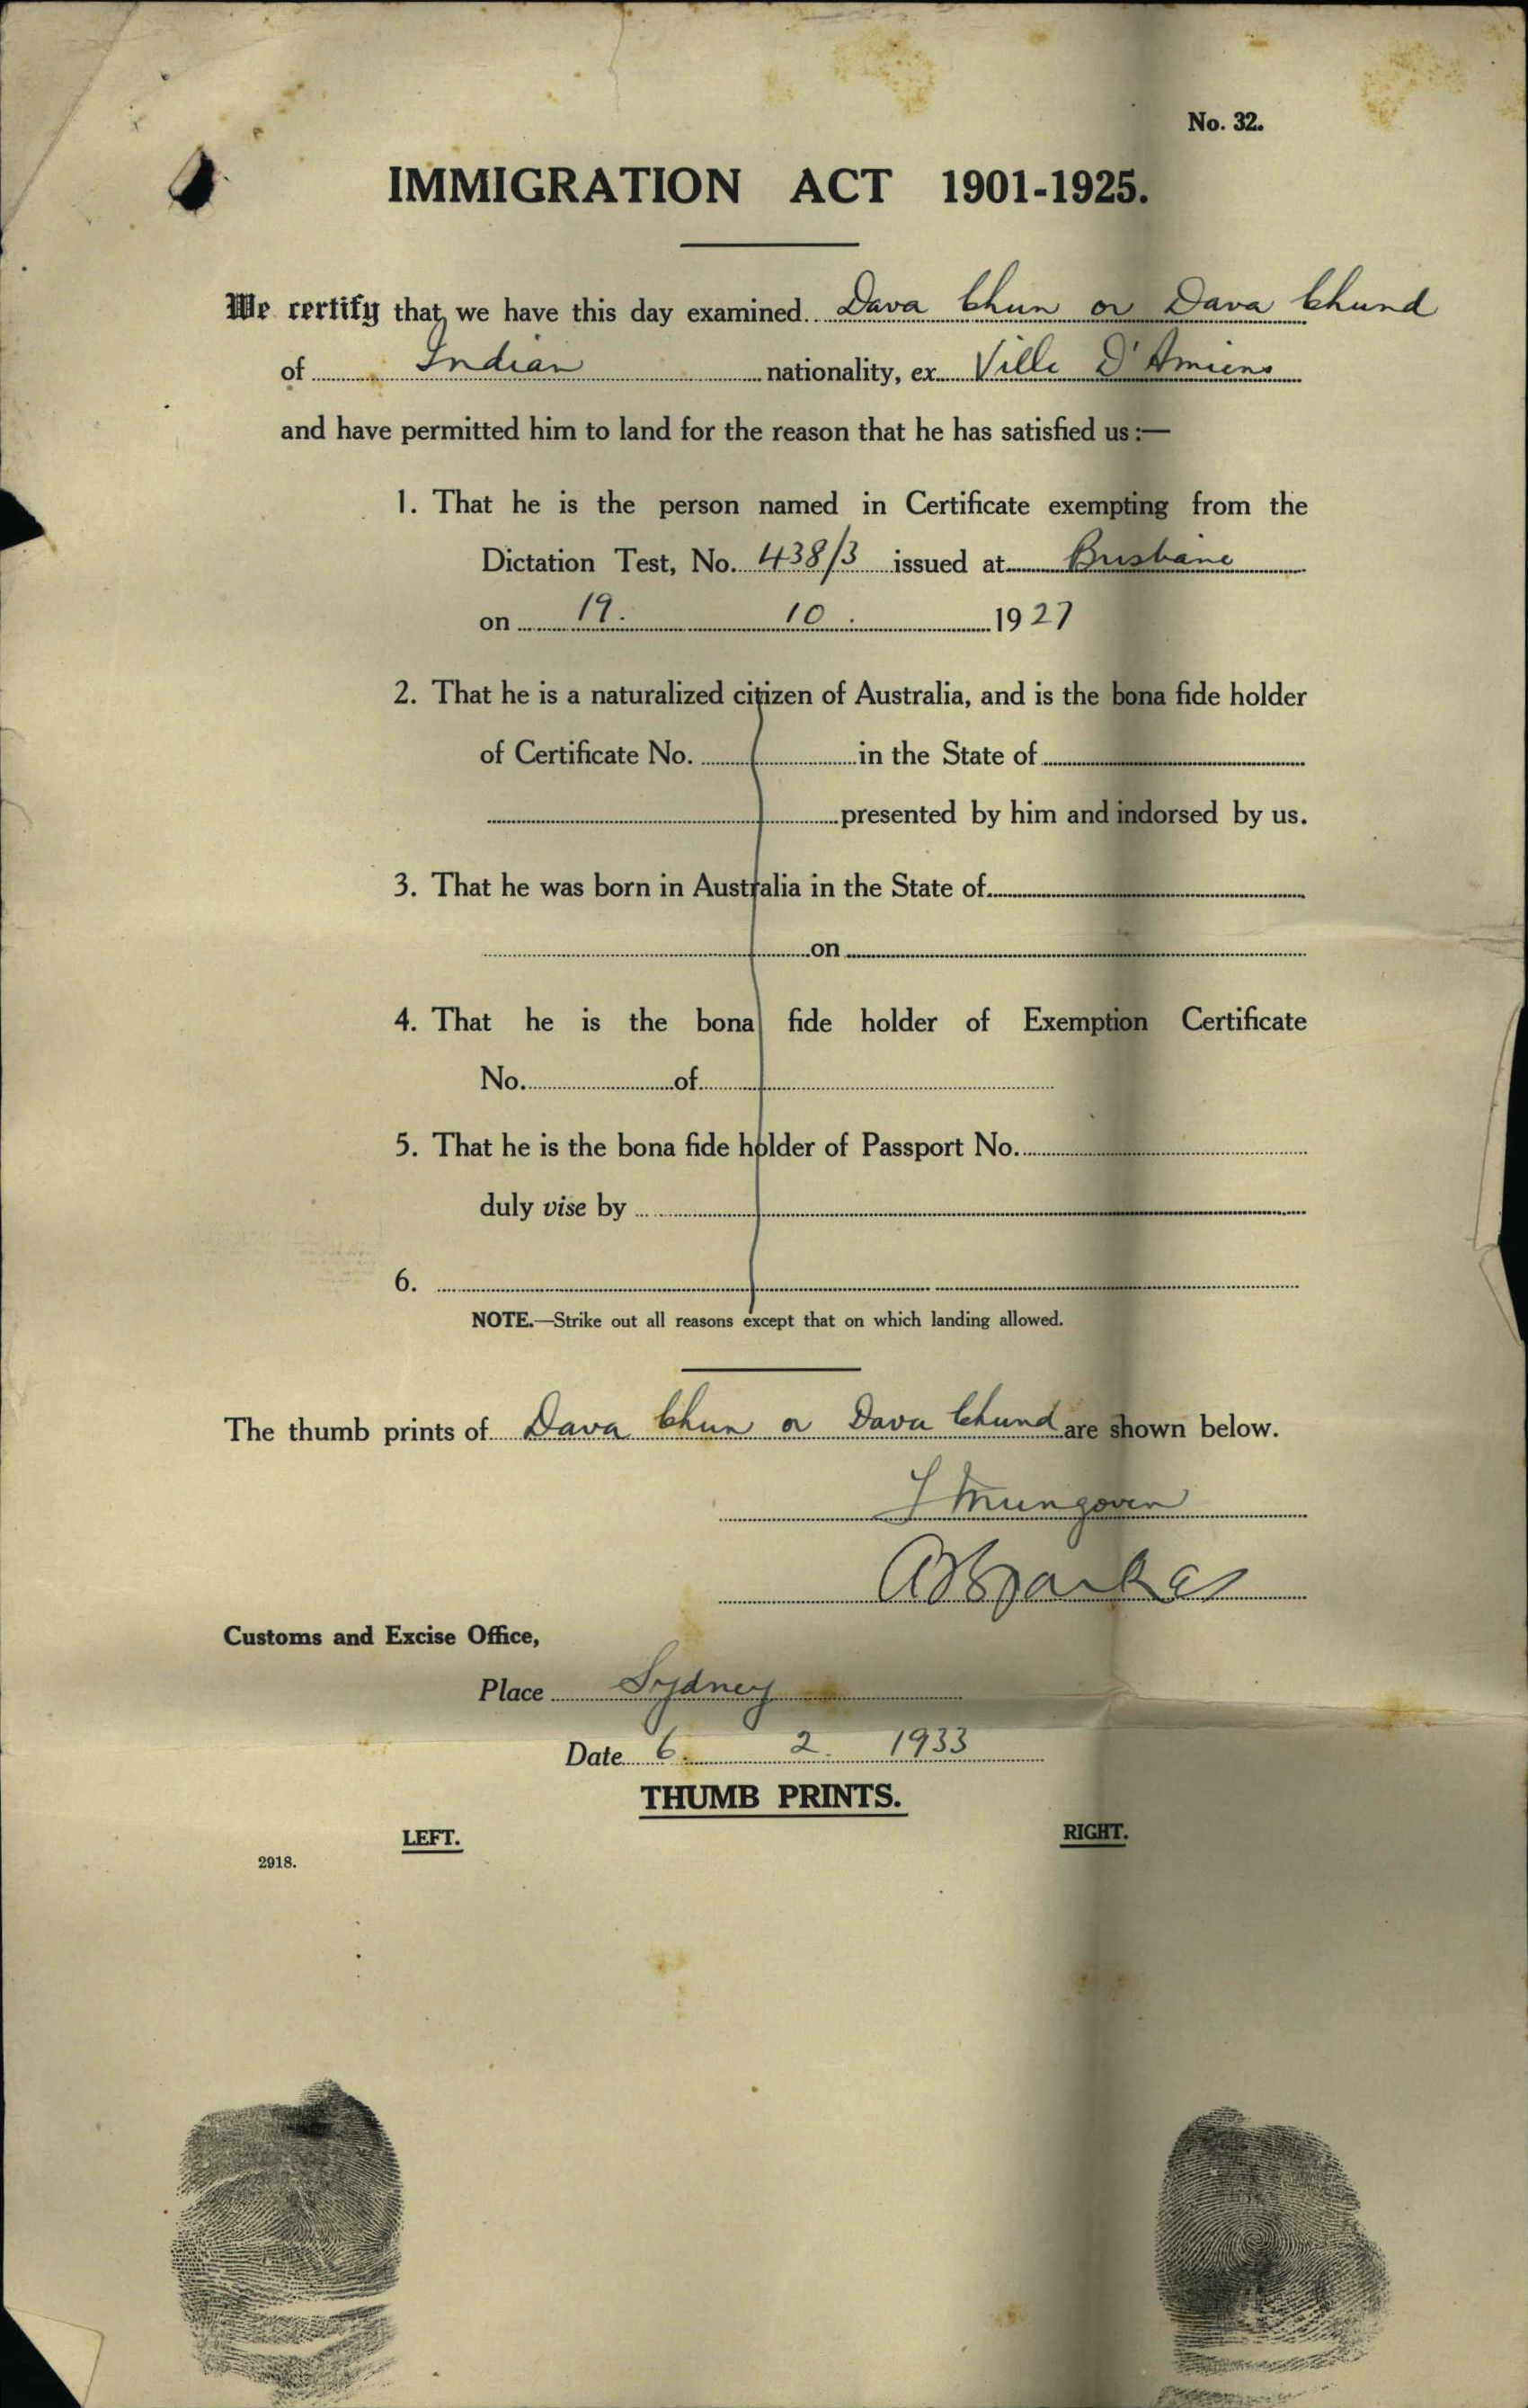 No. 32.
IMMIGRATION ACT 1901-1925.
We certify that we have this day examined Dava Chun or Dava Chund
of Indian nationality, ex Ville D'Amiens
and have permitted him to land for the reason that he has satisfied us :—
1. That he is the person named in Certificate exempting from the
Dictation Test, No. 438/3 issued at Brisbane
on 19. 10. 1927
2. That he is a naturalized citizen of Australia, and is the bona fide holder
of Certificate No. in the State of
presented by him and indorsed by us.
3. That he was born in Australia in the State of
on
4. That he is the bona fide holder of Exemption Certificate
No. of
5. That he is the bona fide holder of Passport No.
duly vise by
6.
NOTE.—Strike out all reasons except that on which landing allowed.
The thumb prints of Dava Chun or Dava Chund are shown below.
J Mungoven
Customs and Excise Office,
Place Sydney
Date 6. 2. 1933
THUMB PRINTS.
LEFT. RIGHT.
2918.